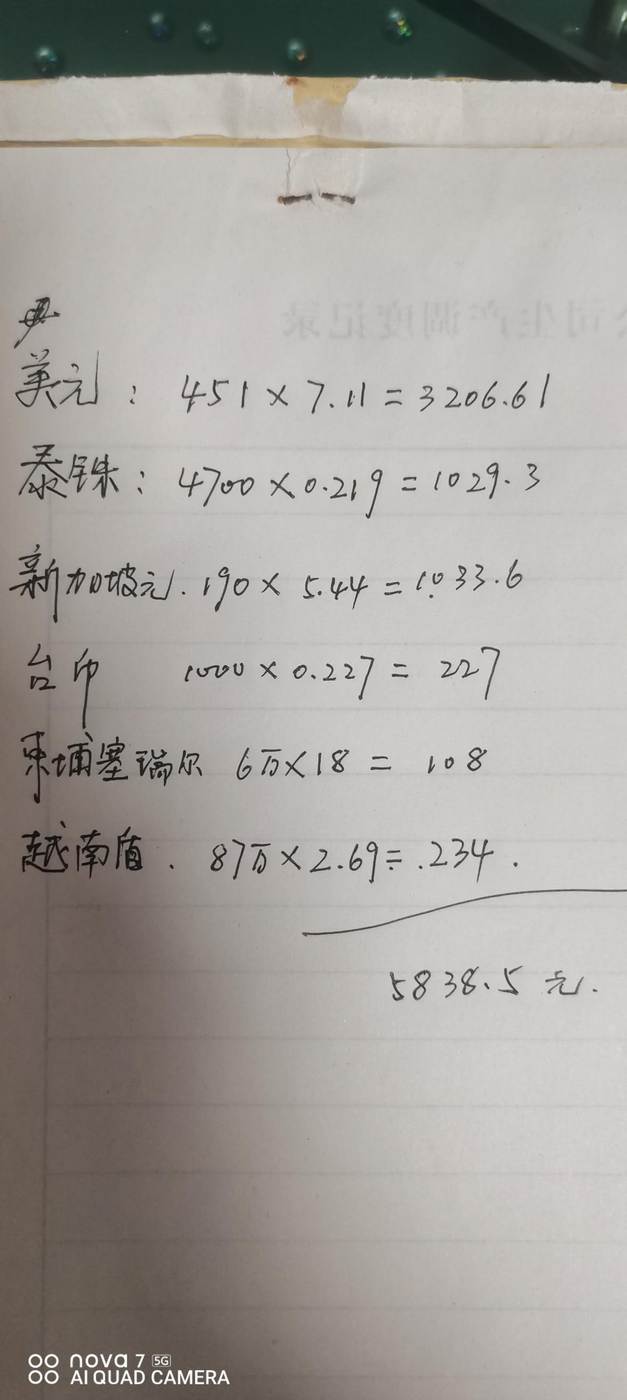 公司生产调度记录
美元: 451×7.11=3206.61
泰铢: 4700×0.219=1029.3
新加坡元. 190×5.44=1033.6
台币 1000×0.227=227
柬埔塞瑞尔 6万×18=108
越南盾. 87万×2.69=.234.
5838.5元.
nova 7 5G
AI QUAD CAMERA